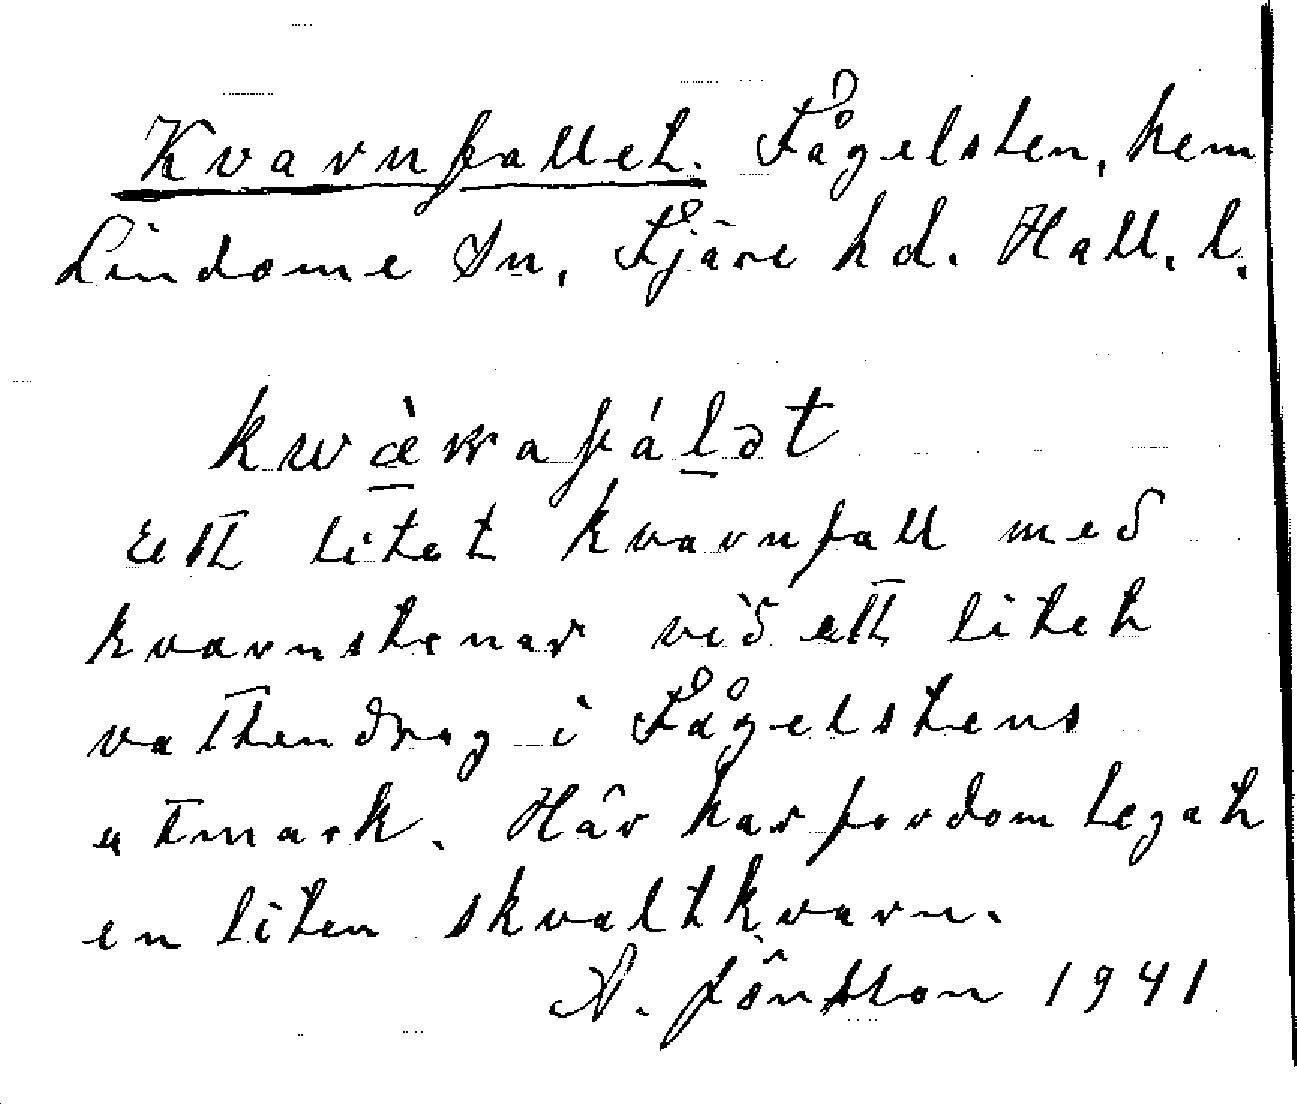 Kvarnfallet. Fågelsten, hem
Lindome sn, Fjäre hd. Hall. l.
kwæ̀rnafáḷət
ett litet kvarnfall med
kvarnstenar vid ett litet
vattendrag i Fågelstens
utmark. Här har fordom legat
en liten skvaltkvarn.
A. Jönsson 1941